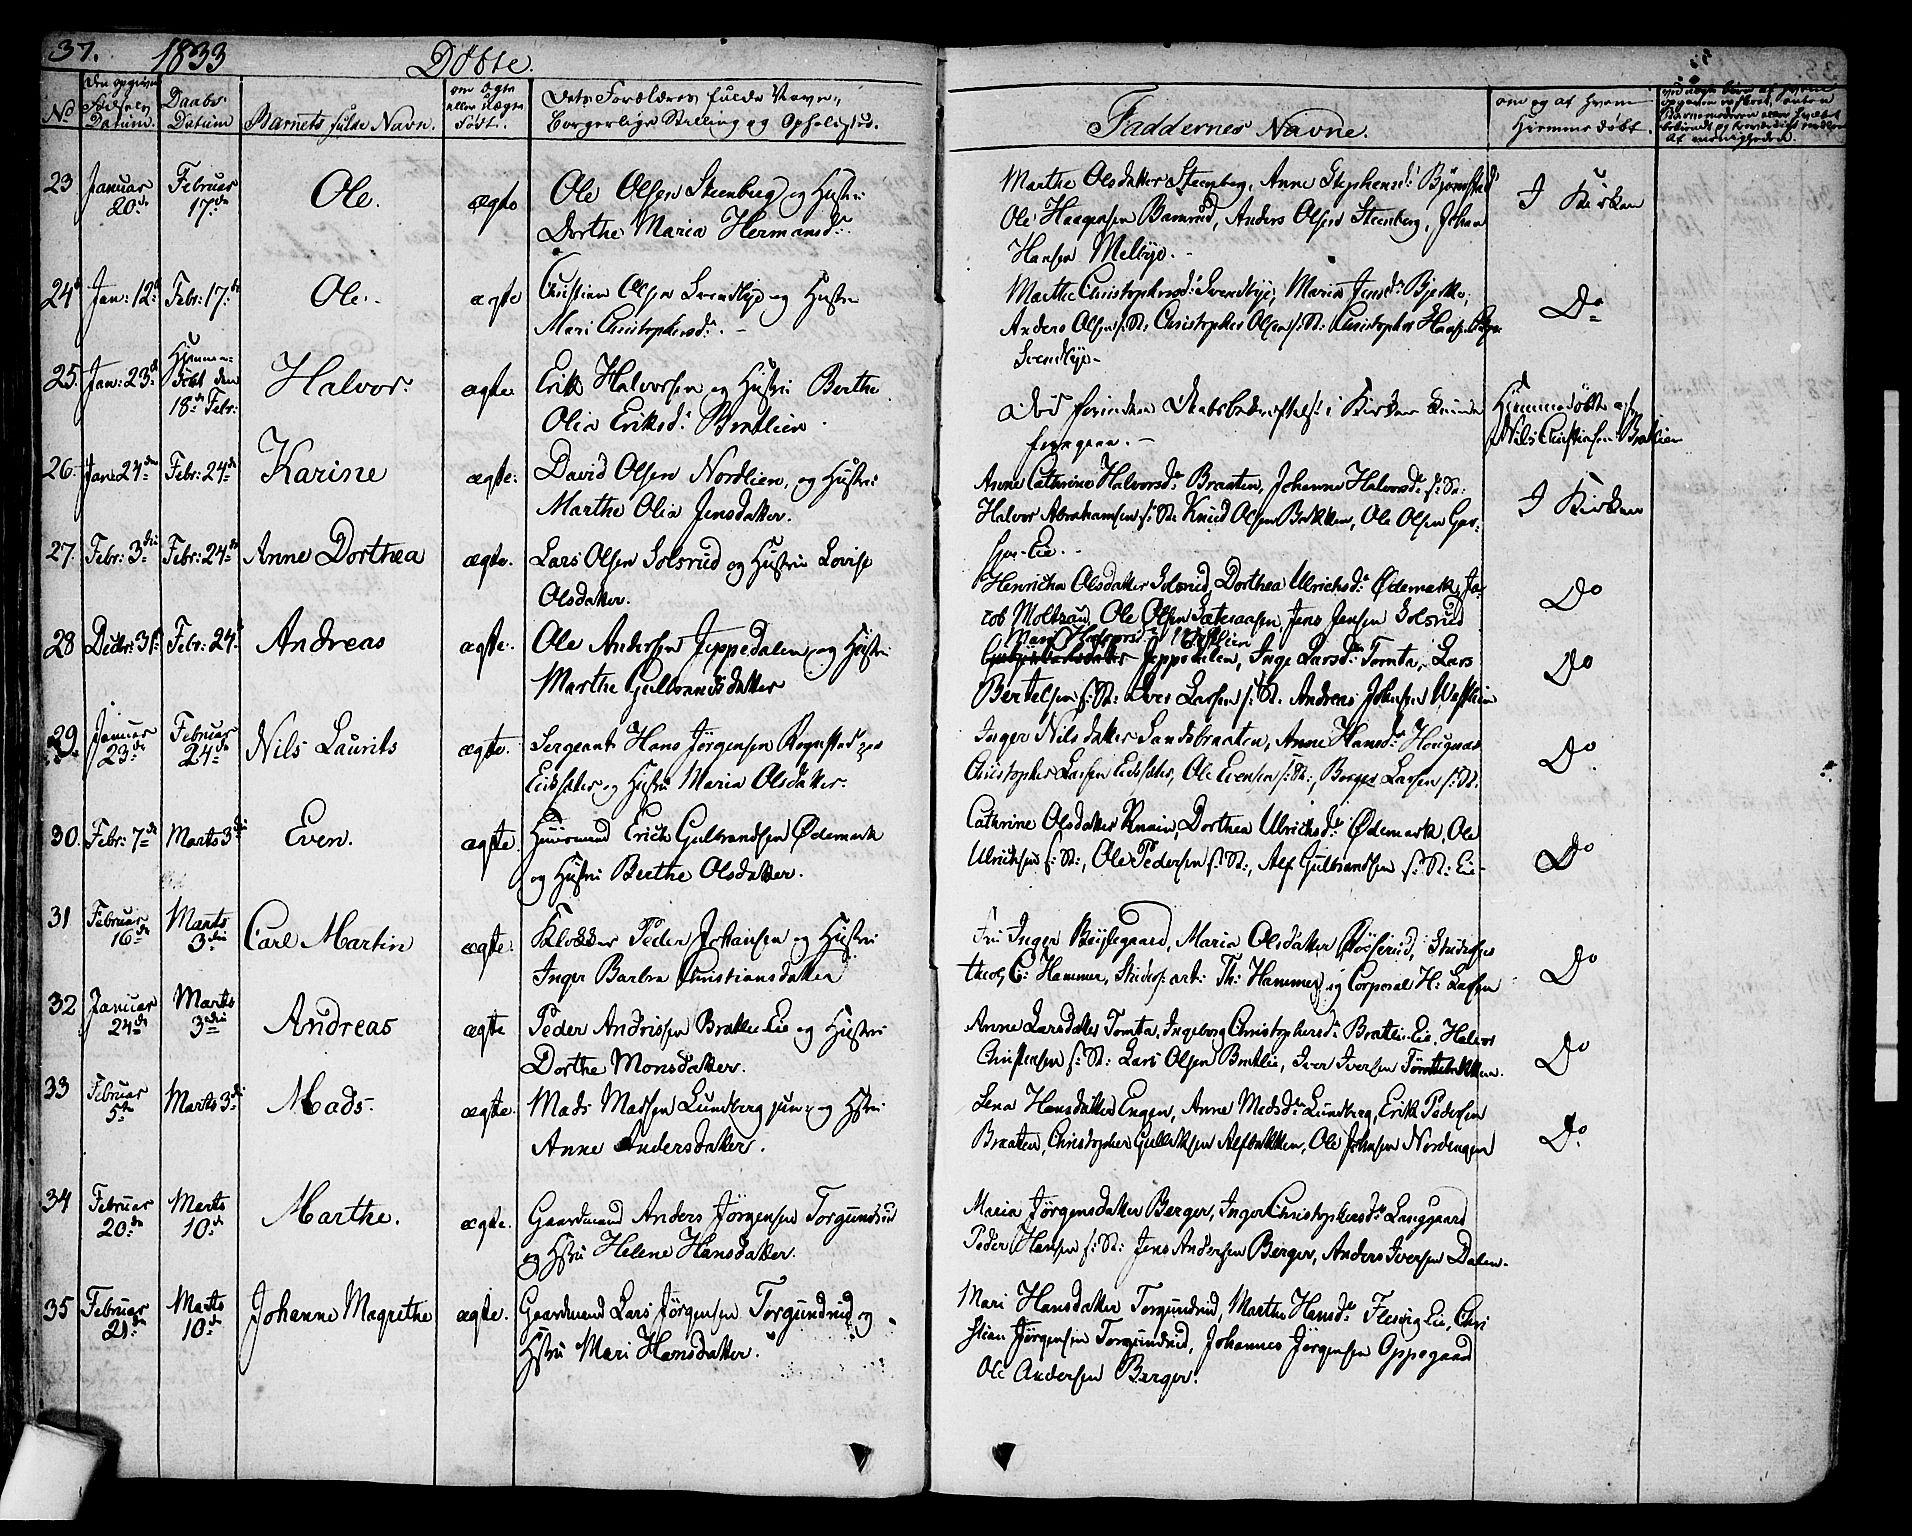 37. 1833 Døbte.
No
Den opgivne Fødsels Datum.
Daabs-Datum
Barnets fulde Navn.
om Ægte eller Uægte Født.
Dets Forældres fulde Navn, Borgerlige Stilling og Opholdsted.
Faddernes Navne.
om og af hvem Hiemmedøbt.
23 Januar 20de Februar 17de Ole. ægte
Ole Olsen Steenberg og Hustru
Dorthe Maria Hermansd:
Marthe Olsdatter Steenberg, Anne Stephensd: Bjørnstad
Ole Haagensen, Anders Olsen Steenberg, Johan
Hansen Melbye.
I Kirken
24 Jan: 12 Febr: 17 Ole. ægte
Christian Olsen Svendbye og Hustru
Mari Christophersd:
Marthe Christophersd: Svendbye, Maria Jensd: Bjerke,
Anders Olsen s: St: Christopher Olsen s: St: Christopher Hansen
Svendbye
Do
25. Jan: 23de Hjemmedøbt den 18de Febr: Halvor. ægte
Erik Halvorsen og Hustru Berthe
Olia Eriksd: Bratlien
foregaae.
Hjemmedøbt af Nils Christiansen Bratlien
26. Jan: 24de Febr: 24de Karine ægte.
David Olsen Nordlien, og Hustru
Marthe Olia Jensdatter.
Anne Cathrine Halvorsd: Braaten, Johanne Halvorsd: s: St:
Halvor Abrahamsen s: St: Knud Olsen Bakken, Ole Olsen
I Kirken
27. Febr: 3die Febr: 24de Anne Dorthea ægte.
Lars Olsen Solsrud og Hustru Lovise
Olsdatter.
Henricha Olsdatter Solsrud, Dorthea Ulrichsd: Ødemark, Ja-
cob Moltzau, Ole Olsen, Jens Jensen Solsrud
Do
28 Decbr: 31 Febr: 24 Andreas ægte.
Ole Andersen Jeppedalen og Hustru
Marthe Gulbrandsdatter
Mari Halvorsd:
Jeppedalen, Inge Larsd: Tomta, Lars
Bertelsen s: St: Iver Larsen s: St. Andreas Johansen Westlien
Do
29. Januar 23de Februar 24de Nils Laurits ægte.
Sergeant Hans Jørgensen Rognstad paa
og Hustru Maria Olsdatter.
Inger Nilsdatter Sandsbraaten, Anne Hansd:
Christopher Larsen, Ole Evensen s: St:, Larsen s: St.
Do
30. Febr: 7de Marts 3die Even. ægte.
Huusmand Erich Gulbrandsen Ødemark
og Hustru Berthe Olsdatter.
Cathrine Olsdatter, Dorthea Ulrichsd: Ødemark, Ole
Ulrichsen s: St:, Ole Pedersen s: St:, Alf Gulbrandsen s: St: Eie
Do
31 Februar 16de Marts 3die Carl Martin ægte.
Klokker Peder Johansen og Hustru
Inger Barbra Christiansdatter
Inger, Maria Olsdatter,
theol: C: Hammer, art: Th: Hammer og Corporal H: Larsen
Do
32 Januar 24de Marts 3die Andreas ægte
Peder Andersen og Hustru
Dorthe Monsdatter.
Anne Larsdatter Tomta, Ingeborg Christophersd:, Halvor
Christensen s: St: Lars Olsen Bratlie, Iver Iversen
Do
33 Februar 5te Marts 3die Mads. ægte.
Mads Madsen Lundberg jun: og Hstru
Anne Andersdatter.
Lena Hansdatter Engen, Anne Madsd: Lundberg, Erik Pedersen
Braaten, Christopher Gulliksen, Ole Johansen Nordengen
Do.
34 Februar 20de Marts 10de Marthe. ægte.
Gaardmand Anders Jørgensen Torgundrud
og Hstru Helene Hansdatter.
Maria Jørgensdatter Berger, Inger Christophersd: Langgaard
Peder Hansen s: St: Jens Andersen Berger, Anders Iversen Dalen.
35 Februar 21de Marts 10de Johanne Magrethe ægte.
Gaardmand Lars Jørgensen Torgundrud og
Hstru Mari Hansdatter.
Mari Hansdatter Torgundrud, Marthe Hansd:, Chri
stian Jørgensen Torgundrud, Johannes Jørgensen Oppegaard
Ole Andersen Berger.